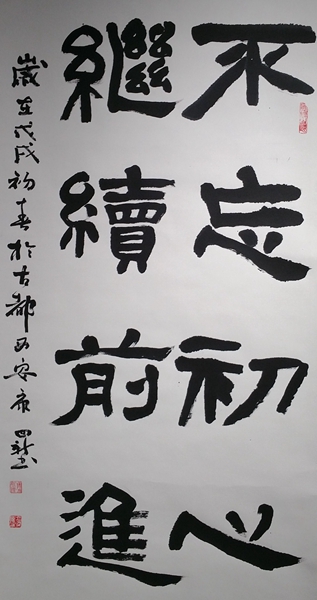 不忘初心
繼續前進
歲在戊戌初春於古都西安市